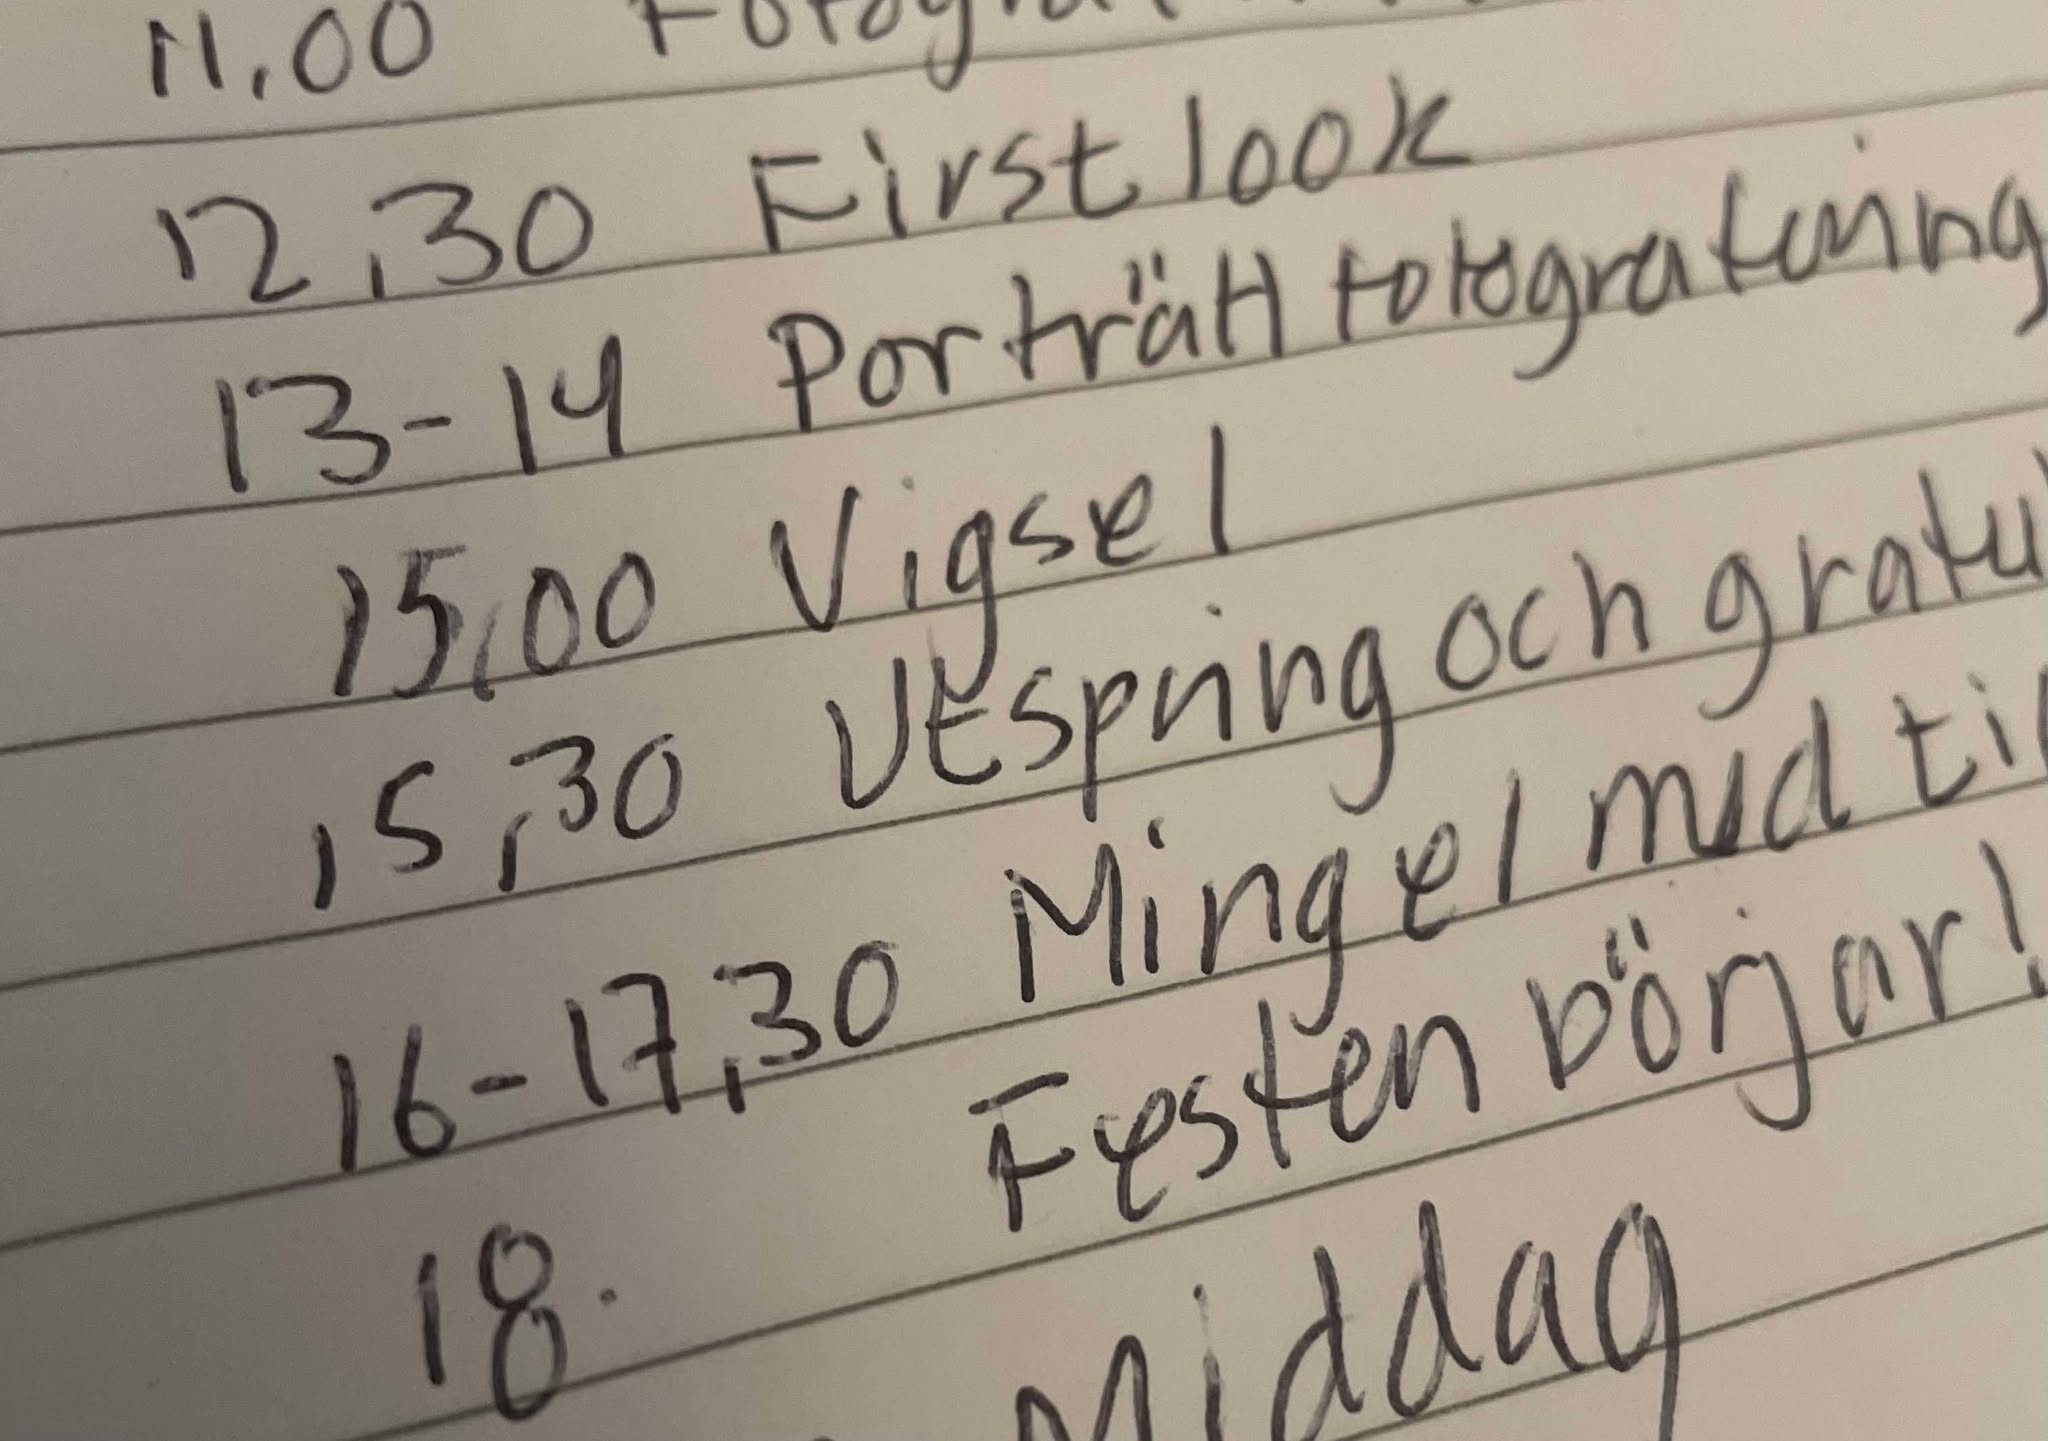 11.00
12,30 First look
13-14 Porträtt fotografering
15,00 Vigsel
15,30 Utspring och gratul
16-17,30 Mingel med til
18. Festen börjar!
Middag